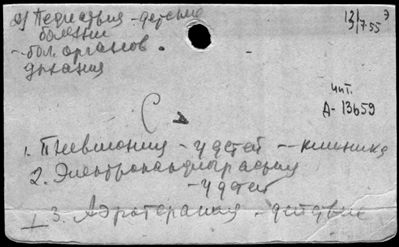 а) Педиатрия - детские
болезни
- бол. органов
дыхания
13/7 55 э
чит.
Д-13659
С
1. Пневмония - у детей -- клиника
2. Электрокардиография
- у детей
I 3. Аэротерапия - действие